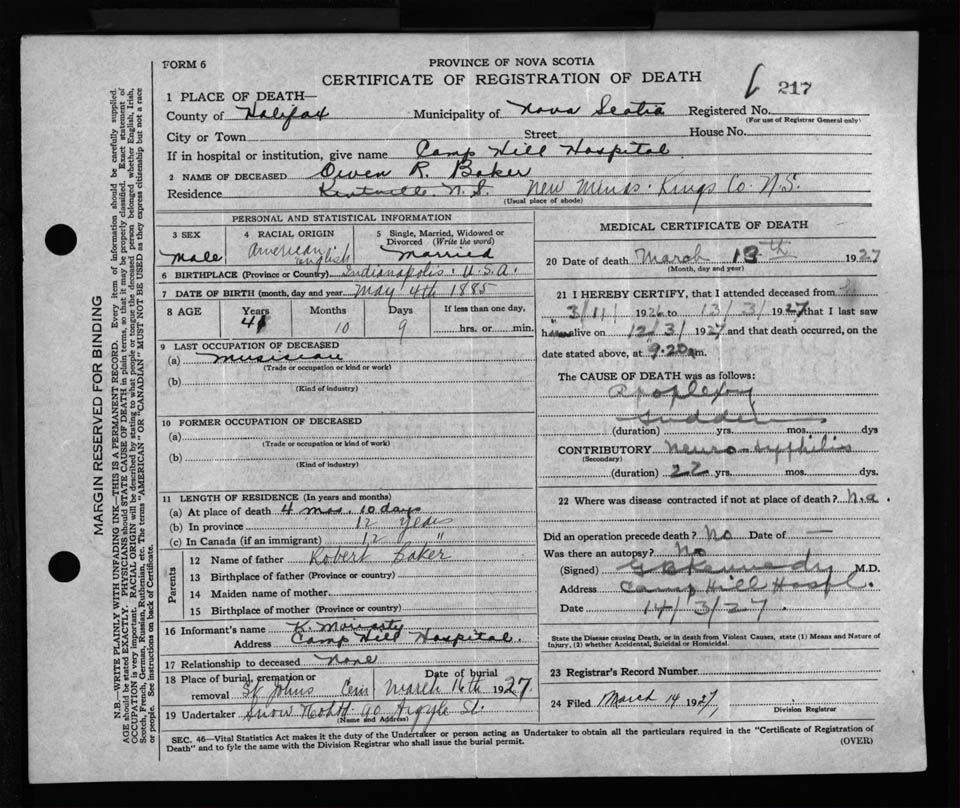 FORM 6
PROVINCE OF NOVA SCOTIA
CERTIFICATE OF REGISTRATION OF DEATH
217
1 PLACE OF DEATH—
County of Halifax Municipality of Nova Scotia Registered No.
(For use of Registrar General only)
City or Town Street House No.
If in hospital or institution, give name Camp Hill Hospital
2 NAME OF DECEASED Owen R. Baker
Residence Kentville N.S. New Minas. Kings Co. N.S.
(Usual place of abode)
PERSONAL AND STATISTICAL INFORMATION
3 SEX
Male
4 RACIAL ORIGIN
American
English
5 Single, Married, Widowed or
Divorced (Write the word)
Married
6 BIRTHPLACE (Province or Country) Indianapolis. U.S.A.
7 DATE OF BIRTH (month, day and year) May 4th 1885
8 AGE Years Months Days If less than one day,
41 10 9 hrs. or min.
9 LAST OCCUPATION OF DECEASED
(a) Musician
(Trade or occupation or kind or work)
(b)
(Kind of industry)
10 FORMER OCCUPATION OF DECEASED
(a)
(Trade or occupation or kind of work)
(b)
(Kind of industry)
11 LENGTH OF RESIDENCE (In years and months)
(a) At place of death 4 mos. 10 days
(b) In province 12 years
(c) In Canada (if an immigrant) 12 "
Parents
12 Name of father Robert Baker
13 Birthplace of father (Province or country)
14 Maiden name of mother
15 Birthplace of mother (Province or Country)
16 Informant's name K. Moriarty
Address Camp Hill Hospital.
17 Relationship to deceased None
18 Place of burial, cremation or removal St Johns Cem Date of burial March 16th 1927
19 Undertaker Snow 90 Argyle St.
(Name and Address)
MEDICAL CERTIFICATE OF DEATH
20 Date of death March 13th 1927
(Month, day and year)
21 I HEREBY CERTIFY, that I attended deceased from
3/11/ 1926 to 13/3/ 1927, that I last saw
h alive on 12/3/ 1927 and that death occurred, on the
date stated above, at 9.20 m.
The CAUSE OF DEATH was as follows:
Apoplexy
Sudden
(duration) yrs. mos. dys
CONTRIBUTORY Neuro-syphilis
(Secondary)
(duration) 22 yrs. mos. dys.
22 Where was disease contracted if not at place of death? N.a.
Did an operation precede death? No Date of —
Was there an autopsy? No
(Signed) Kennedy M.D.
Address Camp Hill Hospl.
Date 14/3/27.
State the Disease causing Death, or in death from Violent Causes, state (1) Means and Nature of
Injury, (2) whether Accidental, Suicidal or Homicidal.
23 Registrar's Record Number
24 Filed March 14 1927
Division Registrar
SEC. 46—Vital Statistics Act makes it the duty of the Undertaker or person acting as Undertaker to obtain all the particulars required in the "Certificate of Registration of
Death" and to fyle the same with the Division Registrar who shall issue the burial permit.
(OVER)
MARGIN RESERVED FOR BINDING
N.B.—WRITE PLAINLY WITH UNFADING INK—THIS IS A PERMANENT RECORD. Every item of information should be carefully supplied.
AGE should be stated EXACTLY. PHYSICIANS should STATE CAUSE OF DEATH in plain terms, so that it may be properly classified. Exact statement of
OCCUPATION is very important. RACIAL ORIGIN will be described by stating to what people or tongue the deceased person belonged whether English, Irish,
Scotch, French, German, Russian, Ruthenian, etc. The terms "AMERICAN" OR "CANADIAN" MUST NOT BE USED as they express citizenship but not a race
or people. See instructions on back of Certificate.